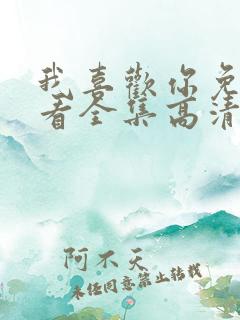 我喜歡你免
看全集高清
阿不天
未经同意禁止转载